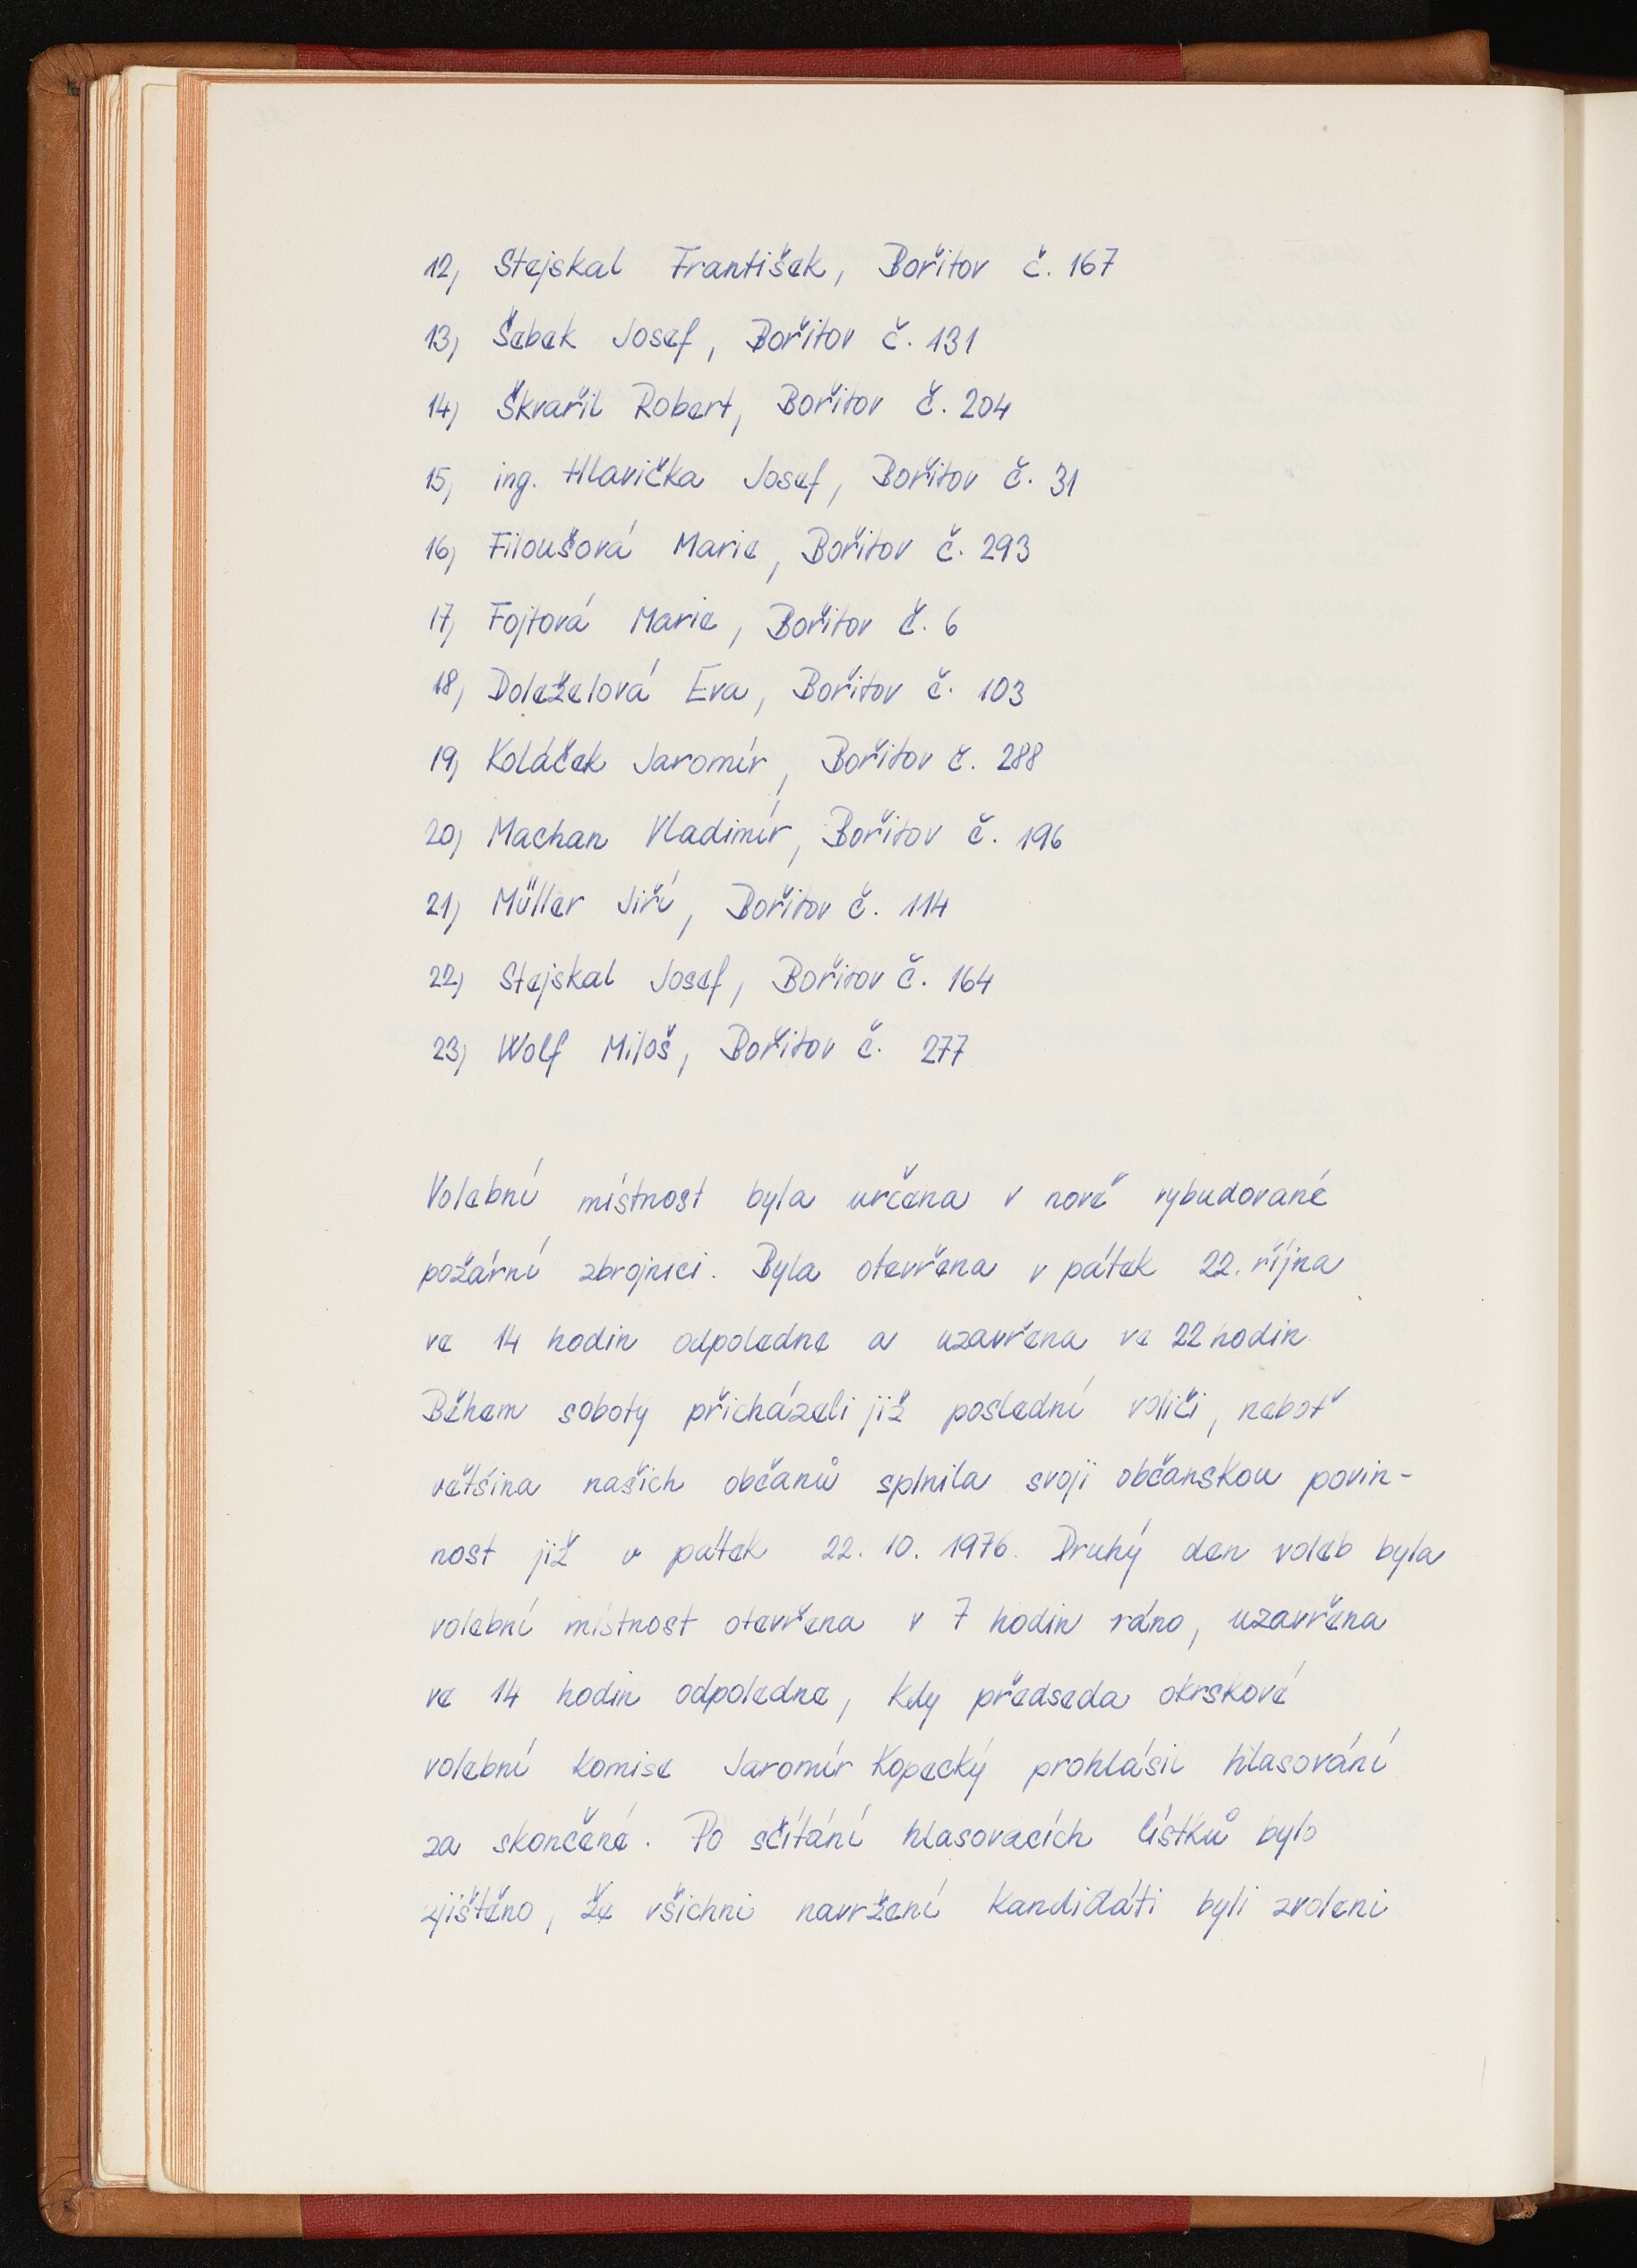 12, Stejskal František, Bořitov č. 167
13, Šebek Josef, Bořitov č. 131
14, Škvařil Robert, Bořitov č. 204
15, ing. Hlavička Josef, Bořitov č. 31
16, Filoušová Marie, Bořitov č. 293
17, Fojtová Marie, Bořitov č. 6
18, Doleželová Eva, Bořitov č. 103
19, Koláček Jaromír, Bořitov č. 288
20, Machan Vladimír, Bořitov č. 196
21, Müller Jiří, Bořitov č. 114
22, Stejskal Josef, Bořitov č. 164
23, Wolf Miloš, Bořitov č. 277
Volební místnost byla určena v nově vybudované
požární zbrojnici. Byla otevřena v pátek 22. října
ve 14 hodin odpoledne a uzavřena ve 22 hodin.
Během soboty přicházeli již poslední voliči, neboť
většina našich občanů splnila svoji občanskou povin-
nost již v pátek 22. 10. 1976. Druhý den voleb byla
volební místnost otevřena v 7 hodin ráno, uzavřena
ve 14 hodin odpoledne, kdy předseda okrskové
volební komise Jaromír Kopecký prohlásil hlasování
za skončené. Po sčítání hlasovacích lístků bylo
zjištěno, že všichni navržení kandidáti byli zvoleni